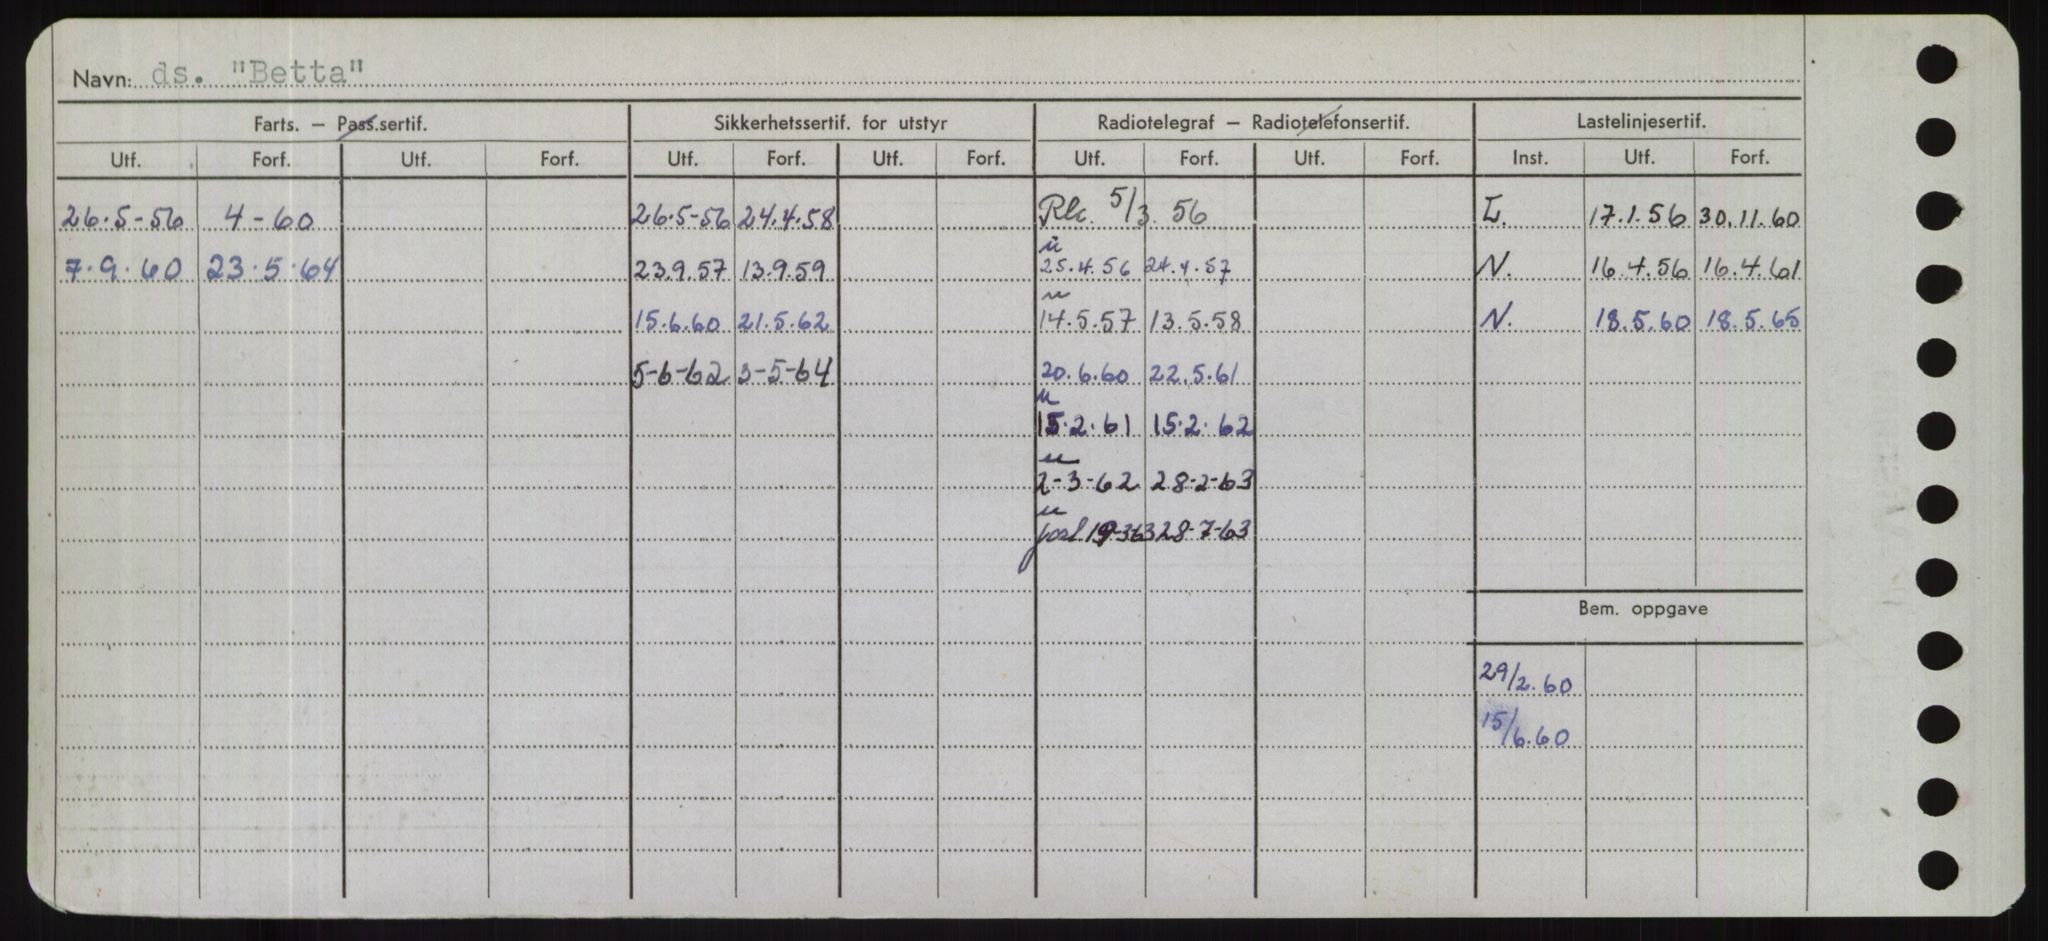 Navn: ds. "Betta"
Farts. — Pass.sertif. Sikkerhetssertif. for utstyr Radiotelegraf — Radiotelefonsertif. Lastelinjesertif.
Utf. Forf. Utf. Forf. Utf. Forf. Utf. Forf. Utf. Forf. Utf. Forf. Inst. Utf. Forf.
26.5-56 4-60 26.5-56 24.4.58 5/3. 56 L. 17.1.56 30.11.60
u
7.9.60 23.5.64 23.9.57 13.9.59 25.4.56 24.4.57 N. 16.4.56 16.4.61
u
15.6.60 21.5.62 14.5.57 13.5.58 N. 18.5.60 18.5.65
5-6-62 3-5-64 20.6.60 22.5.61
u
15.2.61 15.2.62
u
2-3-62 28-2-63
u
forl. 19-3-63 28-7-63
Bem. oppgave
29/2.60
15/6.60